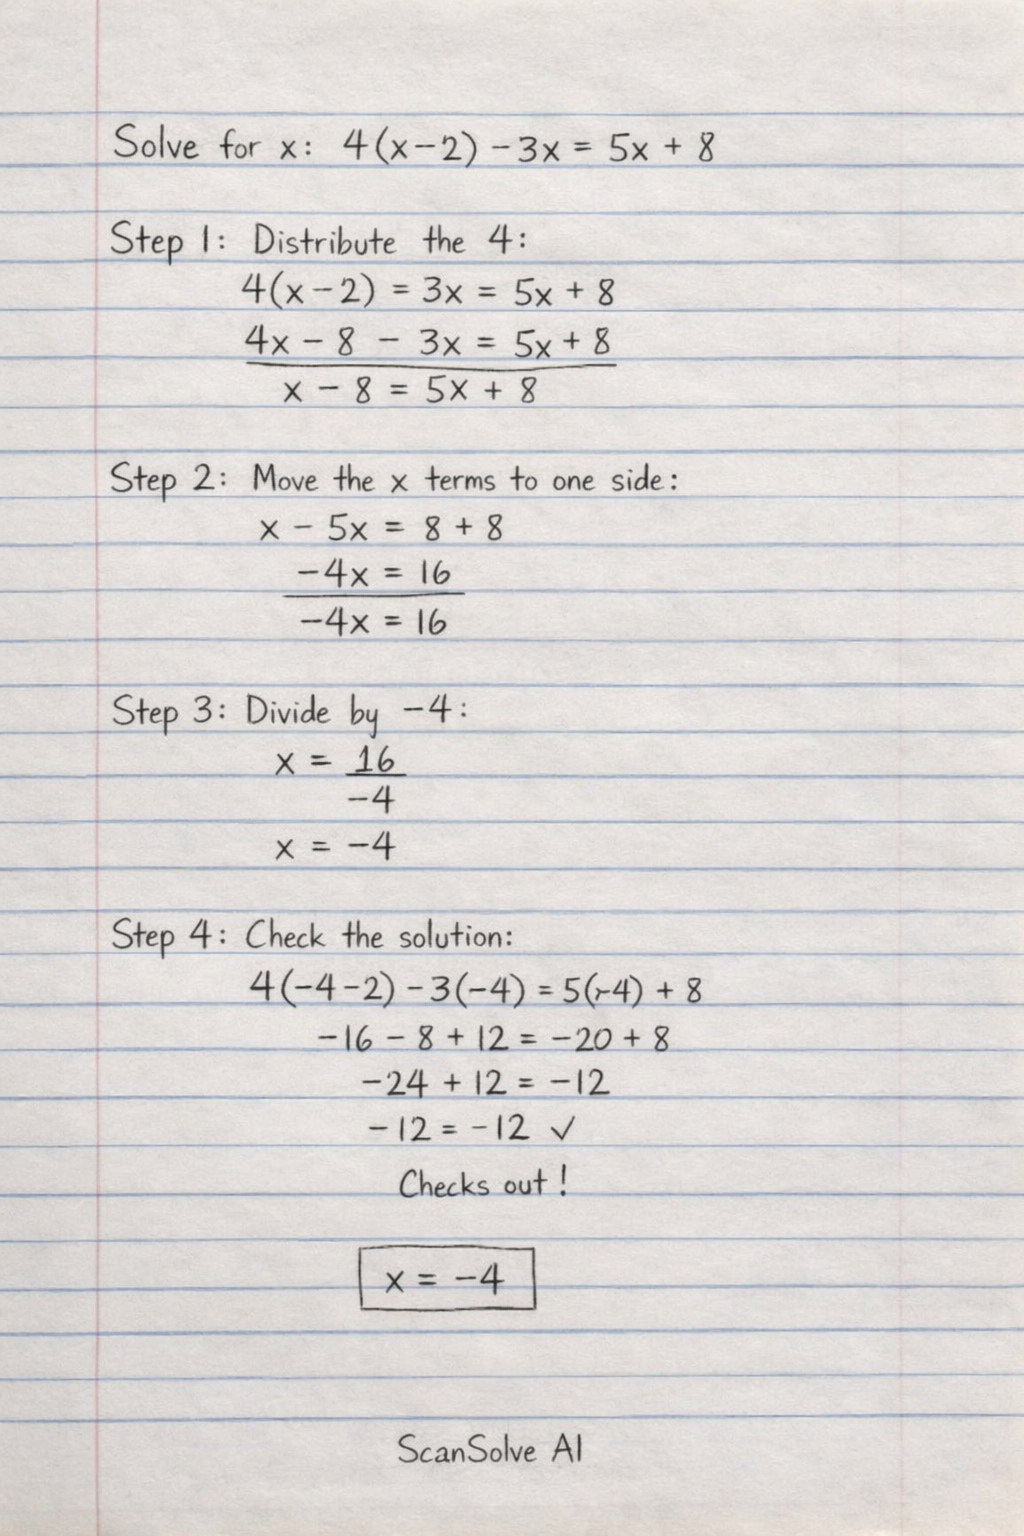 Solve for x: 4(x-2) - 3x = 5x + 8
Step 1: Distribute the 4:
4(x - 2) = 3x = 5x + 8
4x - 8 - 3x = 5x + 8
x - 8 = 5x + 8
Step 2: Move the x terms to one side:
x - 5x = 8 + 8
-4x = 16
-4x = 16
Step 3: Divide by -4:
x = 16
-4
x = -4
Step 4: Check the solution:
4(-4-2) - 3(-4) = 5(-4) + 8
-16 - 8 + 12 = -20 + 8
-24 + 12 = -12
-12 = -12 ✓
Checks out!
x = -4
ScanSolve AI